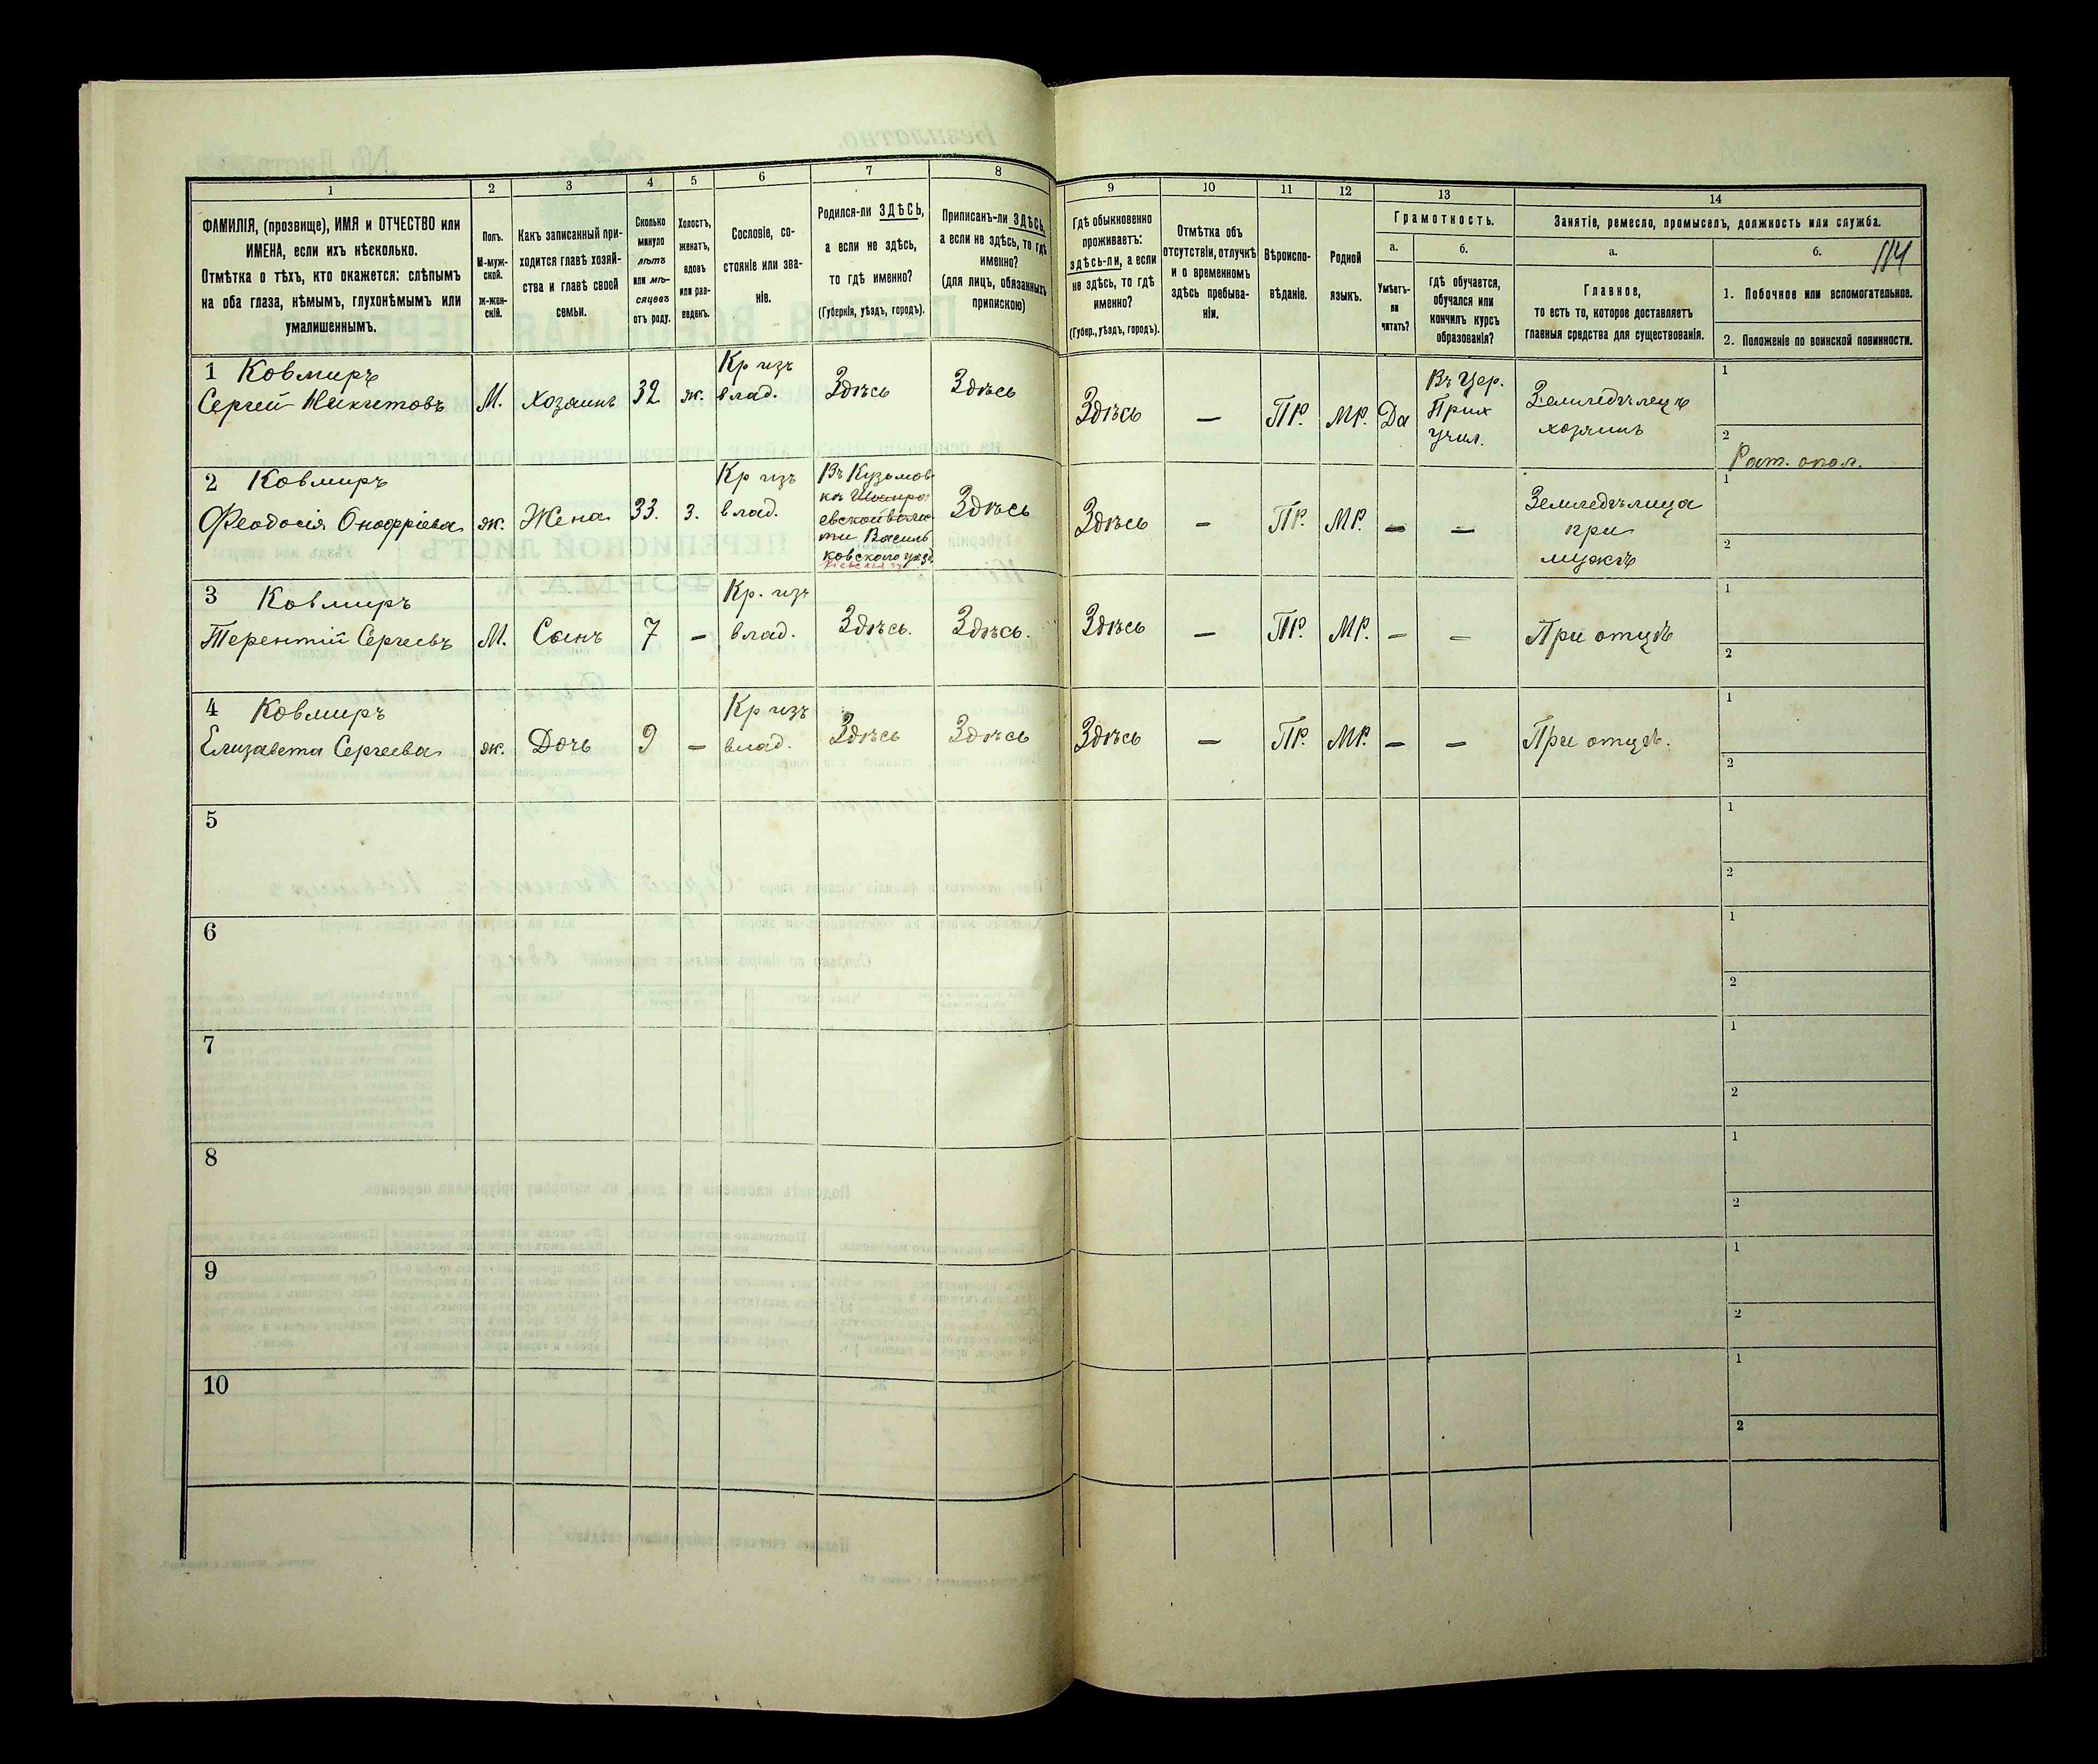 1
2
3
4
5
6
7
8
9
10
11
12
13
14
ФАМИЛІЯ, (прозвище), ИМЯ и ОТЧЕСТВО или
ИМЕНА, если ихъ нѣсколько.
Отмѣтка о тѣхъ, кто окажется: слѣпымъ
на оба глаза, нѣмымъ, глухонѣмымъ или
умалишеннымъ.
Полъ.
М-муж-
ской.
Ж-жен-
скій.
Какъ записанный при-
ходится главѣ хозяй-
ства и главѣ своей
семьи.
Сколько
минуло
лѣтъ
или мѣ-
сяцевъ
отъ роду.
Холостъ,
женатъ,
вдовъ
или раз-
веденъ.
Сословіе, со-
стояніе или зва-
ніе.
Родился-ли ЗДѢСЬ,
а если не здѣсь,
то гдѣ именно?
(Губернія, уѣздъ, городъ).
Приписанъ-ли ЗДѢСЬ,
а если не здѣсь, то гдѣ
именно?
(для лицъ, обязанныхъ
припискою)
Гдѣ обыкновенно
проживаетъ:
здѣсь-ли, а если
не здѣсь, то гдѣ
именно?
(Губер., уѣздъ, городъ).
Отмѣтка объ
отсутствіи, отлучкѣ
и о временномъ
здѣсь пребыва-
ніи.
Вѣроиспо-
вѣданіе.
Родной
языкъ.
Грамотность.
а.
Умѣетъ-
ли
читать?
б.
гдѣ обучается,
обучался или
кончилъ курсъ
образованія?
Занятіе, ремесло, промыселъ, должность или служба.
а.
Главное,
то есть то, которое доставляетъ
главныя средства для существованія.
б.
114
1. Побочное или вспомогательное.
2. Положеніе по воинской повинности.
1 Ковмиръ
Сергей Никитовъ
М.
хозяинъ
32
ж.
Кр изъ
влад.
Здѣсь
Здѣсь
Здѣсь
—
ПР.
МР.
Да
Въ Цер.
Прих
учил.
Земледѣлецъ
хозяинъ
1
2
Рат. опол.
2 Ковмиръ
Феодосія Онофріева
ж.
Жена
33.
з.
Кр изъ
влад.
Въ Кузьмов-
кѣ
евской волос
ти Василь
ковского уезд
Здѣсь
Здѣсь
—
ПР.
МР.
—
—
Земледѣлица
при
мужѣ
1
2
3 Ковмиръ
Терентій Сергеевъ
М.
Сынъ
7
—
Кр. изъ
влад.
Здѣсь.
Здѣсь.
Здѣсь
—
ПР.
МР.
—
—
При отцѣ
1
2
4 Ковмиръ
Елизавета Сергеева
ж.
Дочь
9
—
Кр изъ
влад.
Здѣсь
Здѣсь
Здѣсь
—
ПР.
МР.
—
—
При отцѣ.
1
2
5
1
2
6
1
2
7
1
2
8
1
2
9
1
2
10
1
2